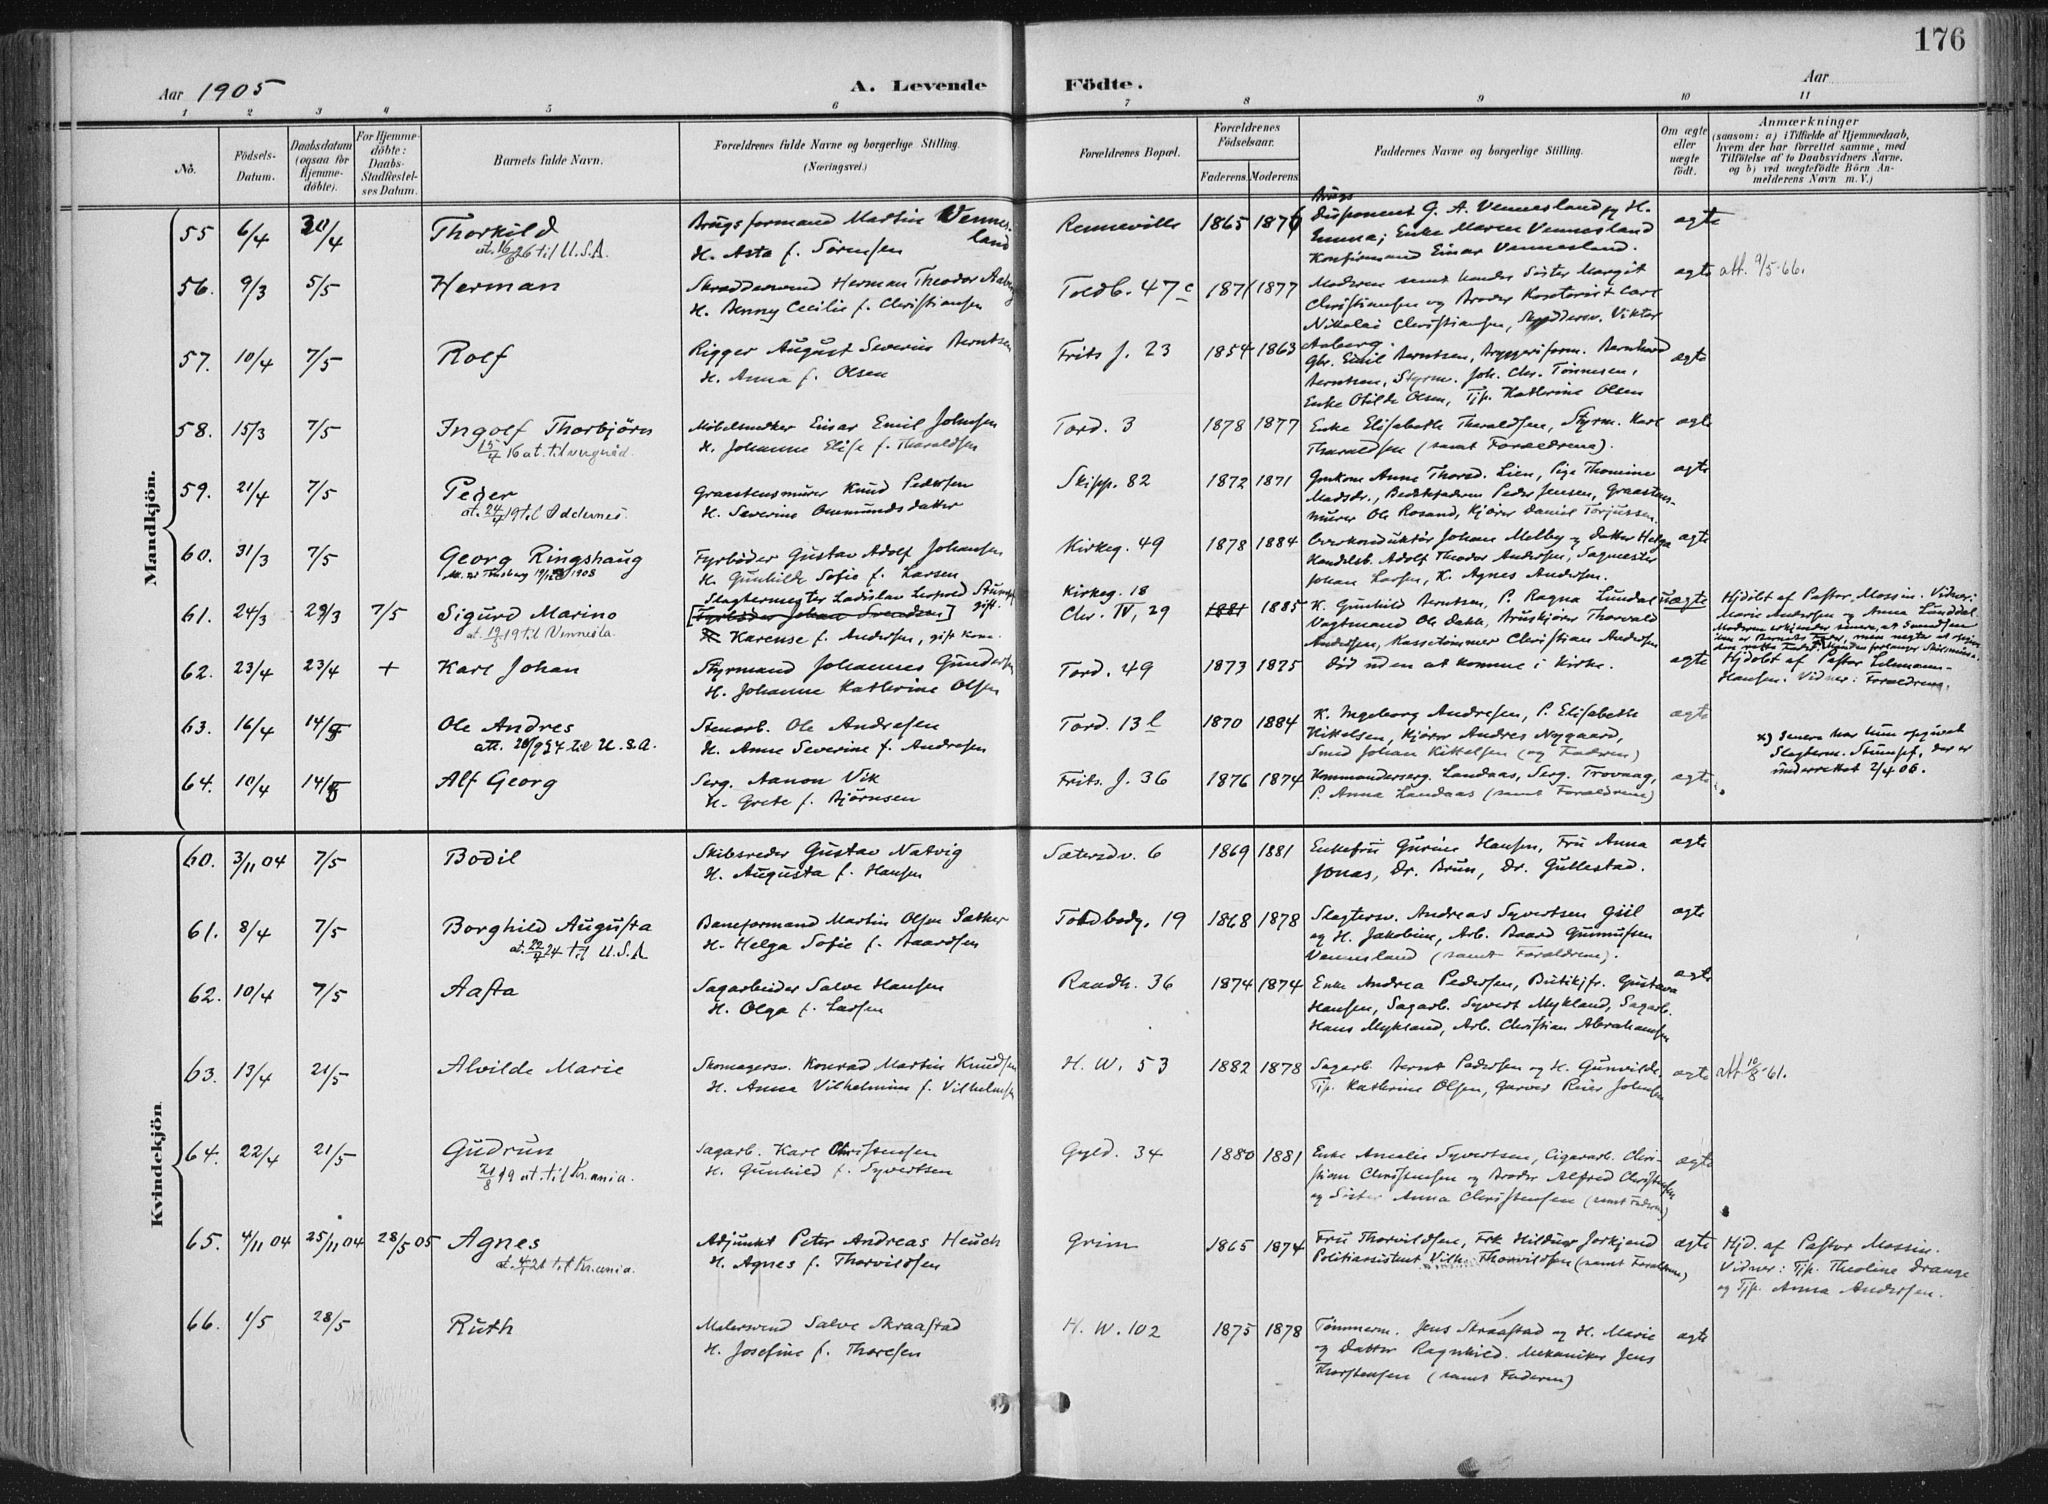 176
Aar 1905
A. Levende Födte.
Aar
1 2 3 4 5 6 7 8 9 10 11
No.
Födsels-Datum.
Daabsdatum (ogsaa for Hjemme-döbte).
For Hjemme-döbte: Daabs-Stadfæstel-ses Datum.
Barnets fulde Navn.
Forældrenes fulde Navne og borgerlige Stilling. (Næringsvei.)
Forældrenes Bopæl.
Forældrenes Födselsaar.
Faderens. Moderens.
Faddernes Navne og borgerlige Stilling.
Om ægte eller uægte födt.
Anmærkninger (saasom: a) i Tilfælde af Hjemmedaab, hvem der har forrettet samme, med Tilföielse af to Daabsvidners Navne, og b) ved uægtefödte Börn An-melderens Navn m. V.)
Mandkjön.
55 6/4 30/4 Thorkild Brugsformand Martin Vennes-land Renneville 1865 1876 Brugs
Disponent G. A. Vennesland og H. ægte
at. 16/6 26 til U.S.A. H. Asta f. Sørensen Emma; Enke Maren Vennesland
Konfirmand Einar Vennesland.
56. 9/3 5/5 Herman Skræddersvend Herman Theodor Aaberg Toldb. 47c 1871 1877 Moderen samt hendes Søster Margit ægte att. 9/5-66.
H. Benny Cecilie f. Christiansen Christiansen og Broder Kontorist Carl
Nikolai Christiansen, Skræddersv. Viktor
Aaberg.
57. 10/4 7/5 Rolf Rigger August Severin Berntsen Frits J. 23 1854 1863 Gbr. Emil Berntsen, Bryggeriform. Bernhard ægte
H. Anna f. Olsen Berntsen, Styrm. Joh. Chr. Tønnesen,
Enke Otilde Olsen, Tjp. Kathrine Olsen
58. 15/3 7/5 Ingolf Thorbjörn Møbelsnedker Einar Emil Johnsen Tord. 3 1878 1877 Enke Elisabeth Tharaldsen, Styrm. Karl ægte
15/4 16 at. til H. Johanne Elise f. Tharaldsen Tharaldsen (samt Forældrene).
59. 21/4 7/5 Peder Graastensmurer Knud Pedersen Skipp. 82 1872 1871 Anne Thorsd. Lien, Pige Thomine ægte
at. 24/4 19 til Oddernes. H. Severine Ommundsdatter Madsdr., Peder Jensen, Graastens-
murer Ole Rosand, Kjörer Daniel Torjussen.
60. 31/3 7/5 Georg Ringshaug Fyrbøder Gustav Adolf Johansen Kirkeg. 49 1878 1884 Overkonduktör Johan Melby og Datter Helga ægte
H. Gunhilde Sofie f. Larsen Handelsb. Adolf Theodor Andersen, Sagmester
Johan Larsen, K. Agnes Andersen.
61. 24/3 29/3 7/5 Sigurd Marino Slagtermester Ladislav Leopold Stumpf gift. Kirkeg. 18
[Fyrbøder Johan Svendsen] Chr. IV, 29 1881 1885 K. Gunhild Berntsen, P. Ragna Lundal uægte Hjdöbt af Pastor Mossin. Vidner:
at. 19/3 19 til Vennesla. Karense f. Andersen, gift Kone. Vagtmand Ole Dahl, Bruskjörer Thorvald Marie Andersen og Anna Lunddal
Andersen, Kassetømmer Christian Andersen
62. 23/4 23/4 + Karl Johan Styrmand Johannes Gundersen Tord. 49 1873 1875 död uden at komme i Kirke. ægte Hjdöbt af Pastor Lehmann-
H. Johanne Kathrine Olsen Hansen. Vidner: Forældrene.
63. 16/4 14/5 Ole Andres Stenarb. Ole Andresen Tord. 13l 1870 1884 K. Ingeborg Andresen, P. Elisabeth ægte
att. 28/9 54 til U.S.A. H. Anne Severine f. Andresen Kittelsen, Kjörer Andres Nygaard, x) senere har hun opgivet
Smed Johan Kittelsen (og Faderen) Slagterm. Stumpf, der er
64. 10/4 14/5 Alf Georg Serg. Aanon Vik Frits. J. 36 1876 1874 Kommandersерg. Landaas, Serg. Trovaag, ægte underrettet 2/4 06.
H. Grete f. Björnsen P. Anna Landaas (samt Forældrene)
Kvindekjön
60. 3/11 04 7/5 Bodil Skibsreder Gustav Natvig Sætersdv. 6 1869 1881 Enkefru Gurine Hansen, Fru Anna ægte
H. Augusta f. Hansen Jonas, Dr. Brun, Dr. Gullestad.
61. 8/4 7/5 Borghild Augusta Baneformand Martin Olsen Sæther Toldbodg. 19 1868 1878 Slagtersv. Andreas Syvertsen Giil ægte
at. 22/4 24 til U.S.A H. Helga Sofie f. Baardsen og H. Jakobine, Arb. Baard Gunnufsen
Vennesland (samt Forældrene).
62. 10/4 7/5 Aasta Sagarbeider Salve Hansen Raadh. 36 1874 1874 Enke Andrea Pedersen, Butikjfr. Gustava ægte
H. Olga f. Larsen Hansen, Sagarb. Syvert Mykland, Sagarb.
Hans Mykland, Arb. Christian Abrahamsen
63. 13/4 21/5 Alvilde Marie Skomagersv. Konrad Martin Knudsen H. W. 53 1882 1878 Sagarb. Bernt Pedersen og H. Gunvilde. ægte att. 10/8-61.
H. Anna Vilhelmine f. Vilhelmsen Tjp. Kathrine Olsen, Garver Reier Johnsen
64. 22/4 21/5 Gudrun Sagarb. Karl Christensen Gyld. 34 1880 1881 Enke Amalie Syvertsen, Cigararb. Chri- ægte
21/8 19 at. til Kr.ania. H. Gunhild f. Syvertsen stian Christensen og Broder Alfred Christensen
og Søster Anna Christensen (samt Faderen)
65. 4/11 04 25/11 04 28/5 05 Agnes Adjunkt Peter Andreas Heuch Grim 1865 1874 Fru Thorvildsen, Frk Hildur Jorkjend ægte Hjd. af Pastor Mossin.
at. 4/1 26 til Kr.ania. H. Agnes f. Thorvildsen Politiassistent Vilh. Thorvildsen (samt Forældrene) Vidner: Tjp. Theoline Drange
og Tjp. Anna Andersen.
66. 1/5 28/5 Ruth Malersvend Salve Skraastad H. W. 102 1875 1878 Tømmerm. Jens Skraastad og H. Marie ægte
H. Josefine f. Thoresen og Datter Ragnhild. Mekaniker Jens
Thorstensen (samt Faderen)